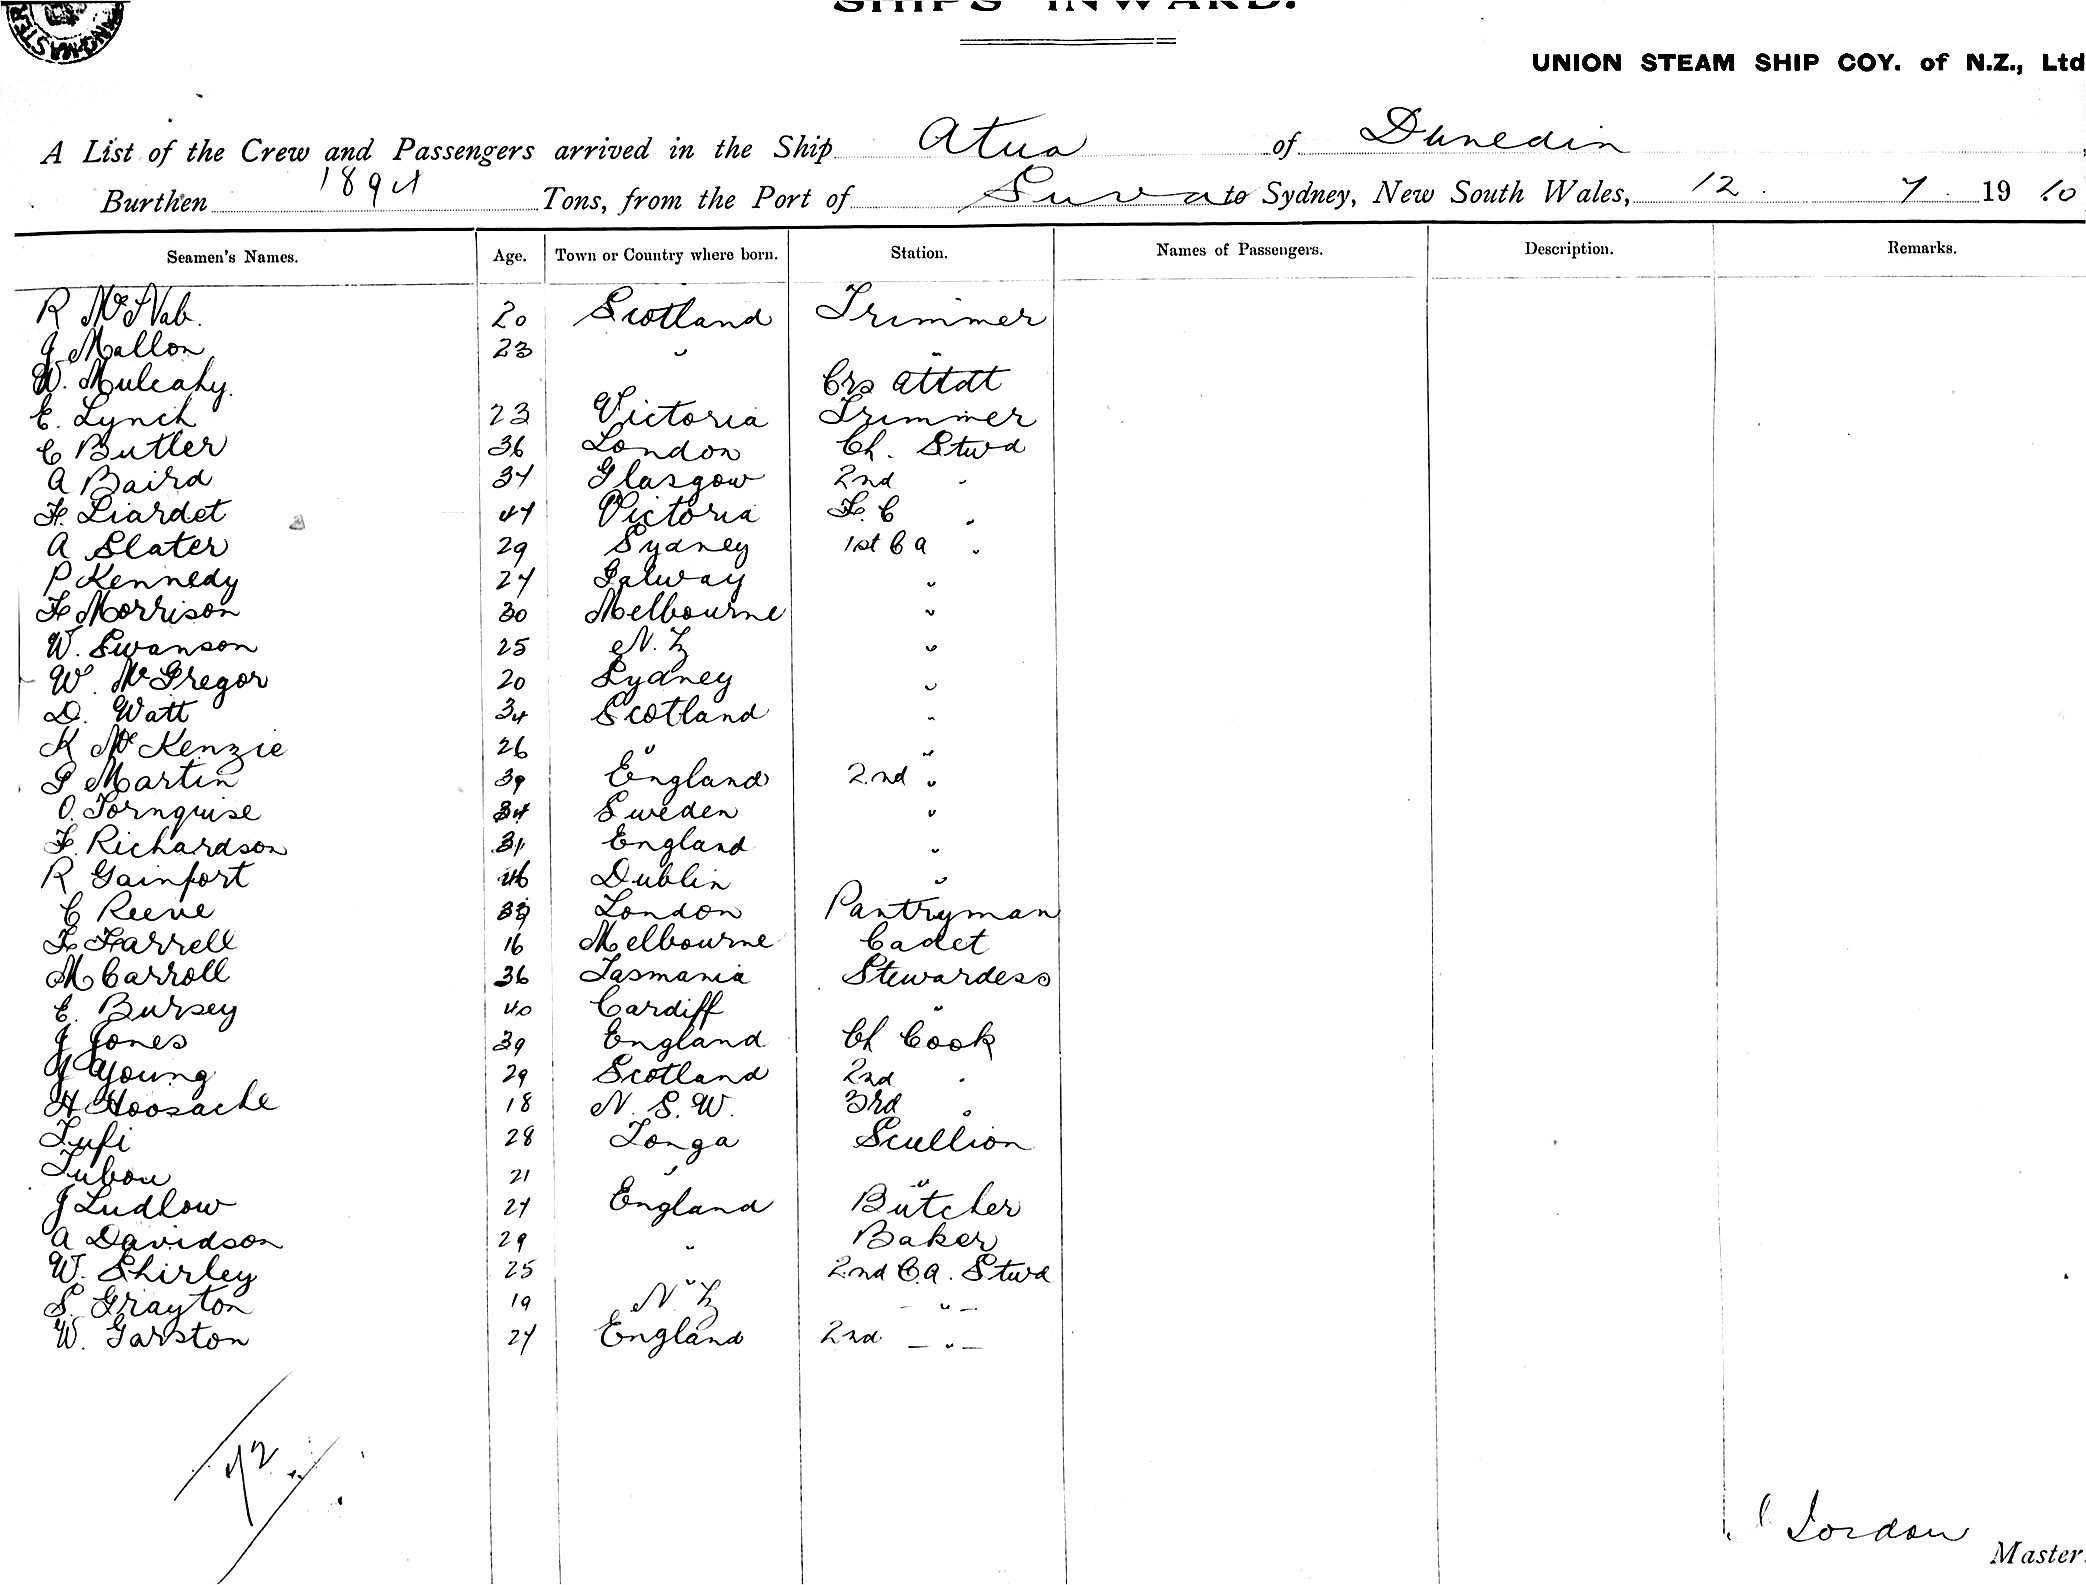 SHIPS INWARD.
UNION STEAM SHIP COY. of N.Z., Ltd
A List of the Crew and Passengers arrived in the Ship Atua of Dunedin
Burthen Tons, from the Port of Suva to Sydney, New South Wales, 12. 7. 1910
Seamen's Names. Age. Town or Country where born. Station. Names of Passengers. Description. Remarks.
R McNab. 20 Scotland Trimmer
J Mallon 23 " "
W. Mulcahy. Crs Attdt
E. Lynch 23 Victoria Trimmer
C Butler 36 London Ch. Stwd
A Baird 37 Glasgow 2nd "
F. Liardet 47 Victoria F. C "
A Slater 29 Sydney 1st C a "
P Kennedy 27 Galway "
F Morrison 30 Melbourne "
W. Swanson 25 N. Z "
W. McGregor 20 Sydney "
D. Watt 34 Scotland "
K McKenzie 26 " "
G Martin 39 England 2nd "
O. Tornquise 34 Sweden "
F. Richardson 31 England "
R Gainfort 46 Dublin "
C Reeve 39 London Pantryman
F Farrell 16 Melbourne Cadet
M Carroll 36 Tasmania Stewardess
E. Bursey 40 Cardiff "
J Jones 39 England Ch Cook
Young 29 Scotland 2nd "
H Hoosache 18 N. S. W. 3rd "
Tufi 28 Tonga Scullion
Tubou 21 " "
J Ludlow 27 England Butcher
A Davidson 29 " Baker
W. Shirley 25 " 2nd C.a. Stwd
S. Grayton 19 N. Z - " -
W. Garston 27 England 2nd - " -
72
Master.